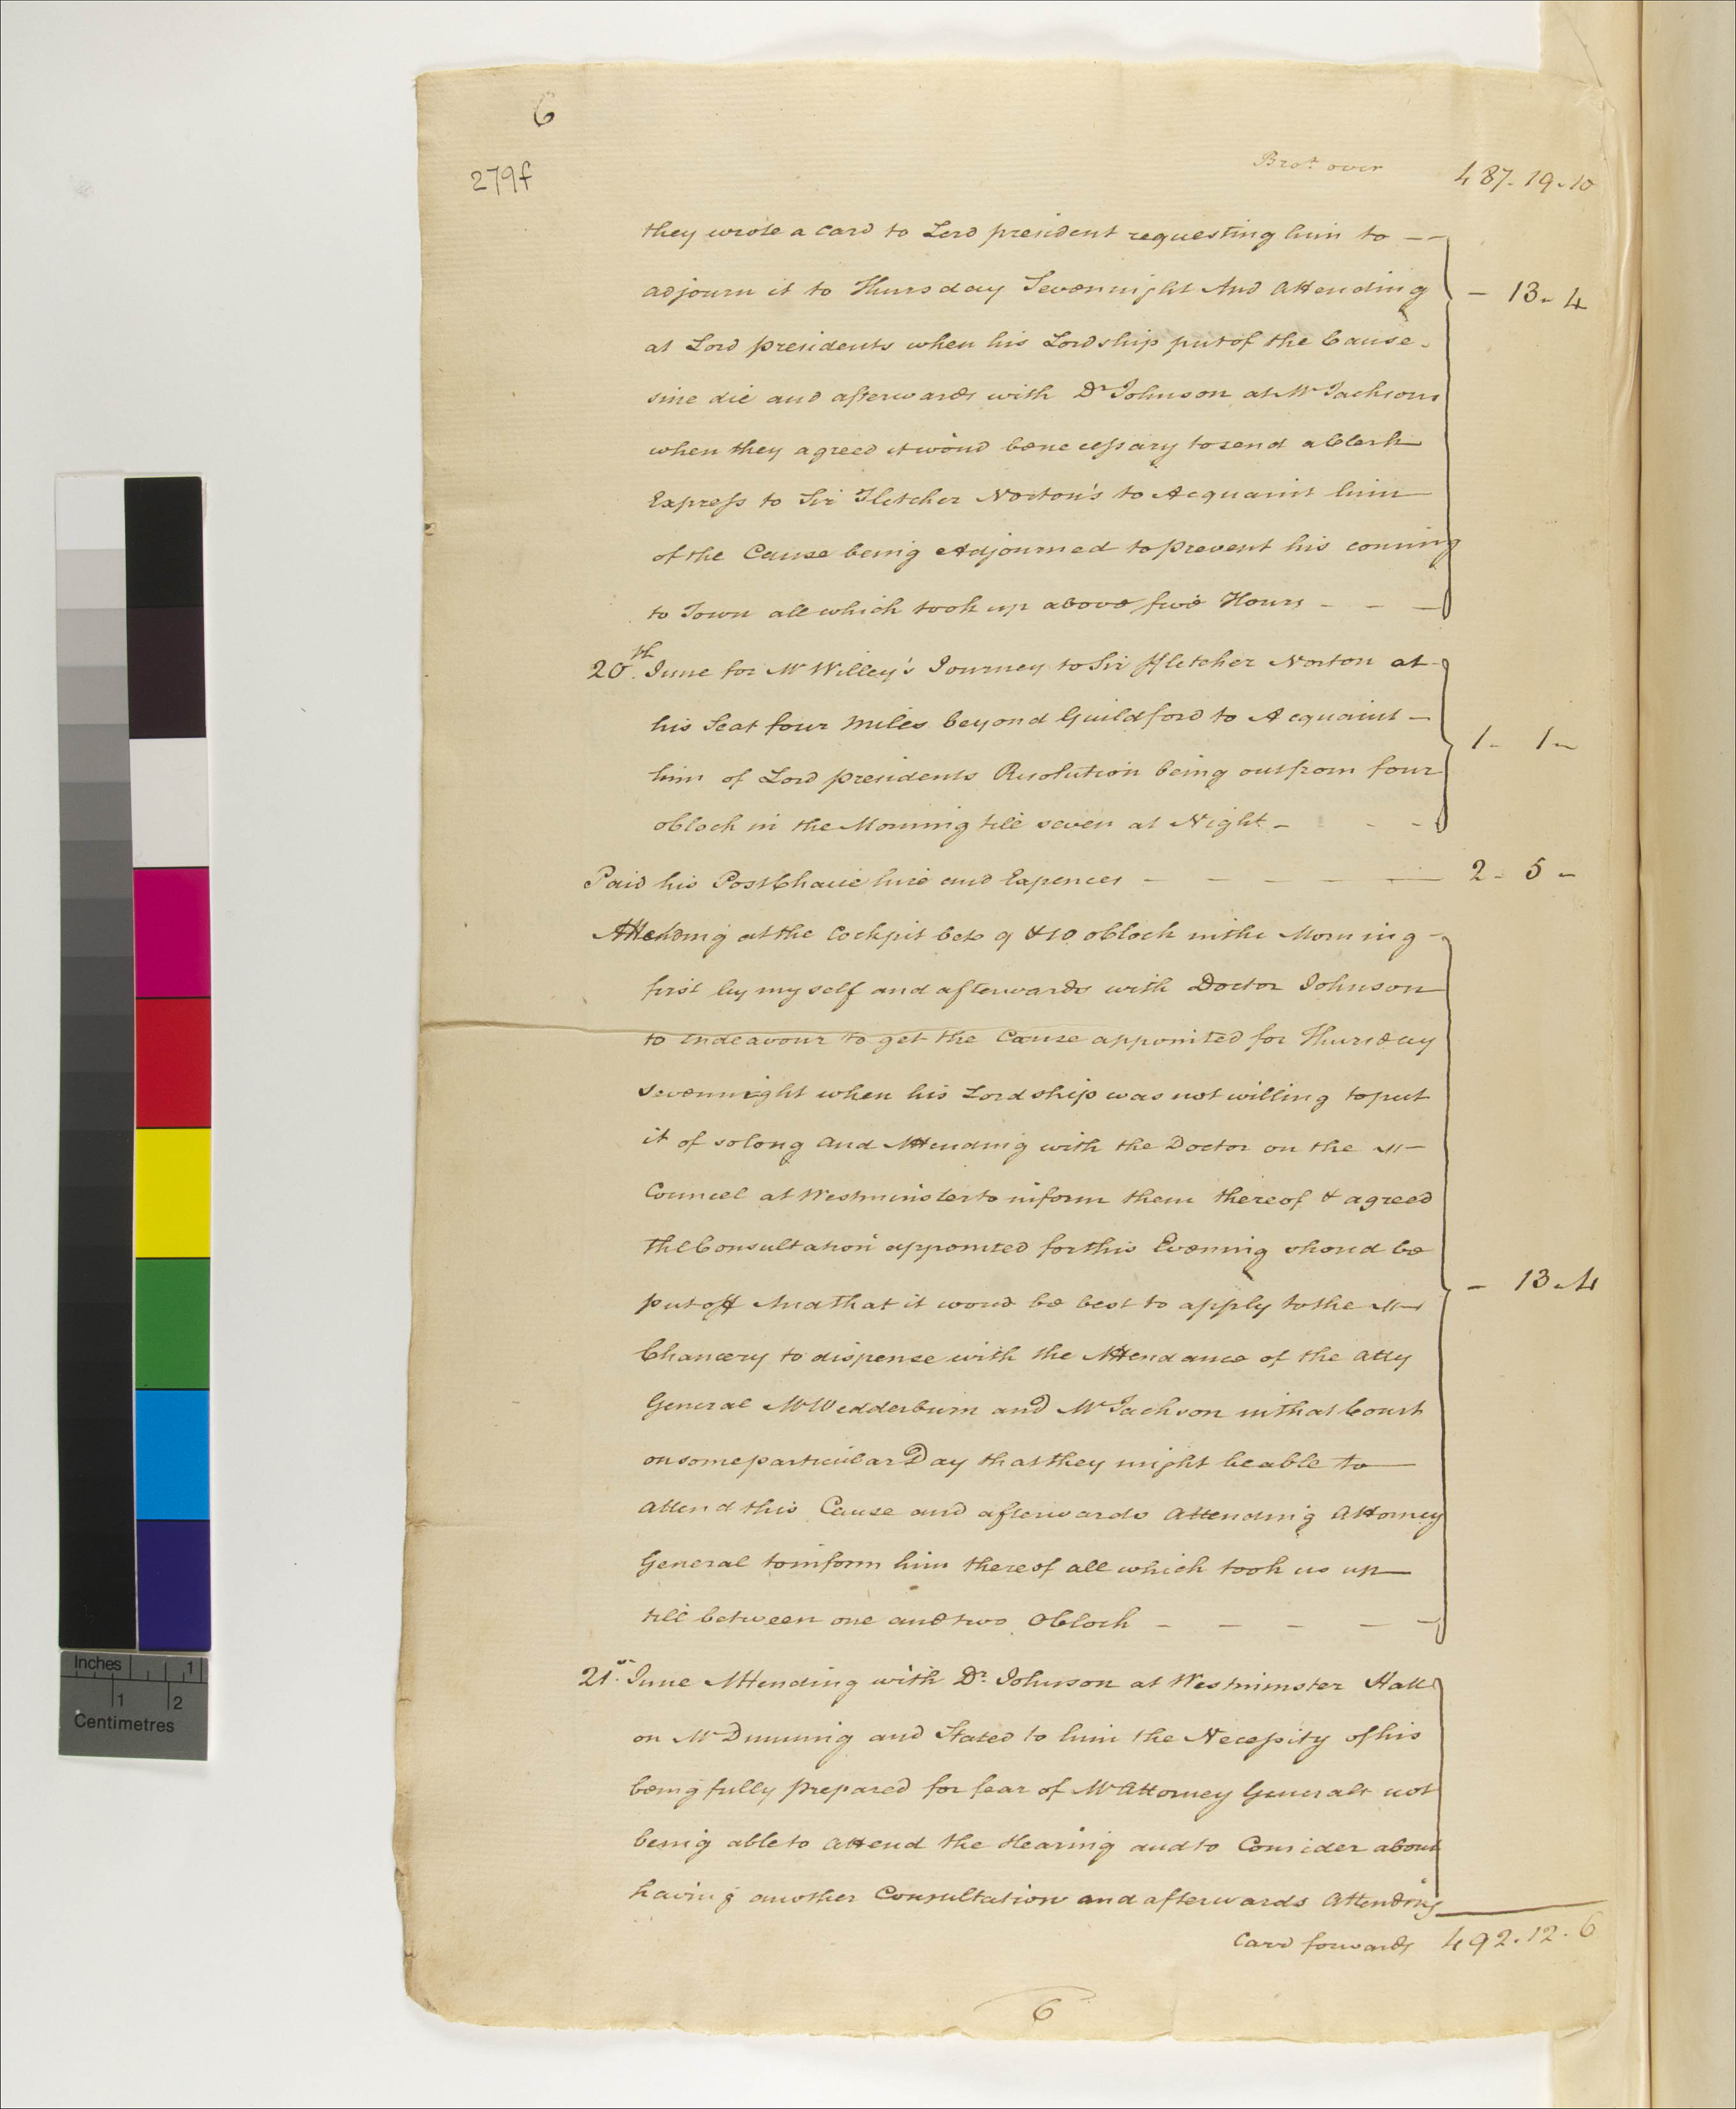 6
279f
Bro.t over 487.19.10
they wrote a Card to Lord president requesting him to --
adjourn it to Thursday Sevennight And Attending - 13. 4
at Lord presidents when his Lordship put of the Cause.
sine die and afterwards with Dr Johnson at Mr Jacksons
when they agreed it wou'd be necessary to send a Clerk
Express to Sir Fletcher Norton's to Acquaint him
of the Cause being Adjourned to prevent his coming
to Town all which took up above five Hours - - -
20th. June for Mr Willey's Journey to Sir ffletcher Norton at
his Seat four Miles beyond Guildford to Acquaint - 1 - 1 -
him of Lord presidents Resolution being out from four
oClock in the Morning till seven at Night - - -
Paid his Post Chaise hire and Expences - - - - - 2 - 5 -
Attending at the Cockpit beto 9 & 10 oClock in the Morning -
first by myself and afterwards with Doctor Johnson
to Endeavour to get the Cause appointed for Thursday
Sevennight when his Lordship was not willing to put
it of so long and Attending with the Doctor on the
Councel at Westminster to inform them thereof & agreed
the Consultation appointed for this Evening shoud be
put off And that it woud be best to apply to the - 13. 4
Chancery to dispense with the Attendance of the Atty
General Mr Wedderburn and Mr Jackson in that Court
on some particular Day that they might be able to
attend this Cause and afterwards Attending Attorney
General to inform him thereof all which took us up
till between one and two oClock - - - - -
21st. June Attending with Dr. Johnson at Westminster Hall
on Mr Dunning and Stated to him the Necessity of his
being fully prepared for fear of Mr Attorney Generals not
being able to attend the Hearing and to Consider about
having another Consultation and afterwards Attending
Card forwards 492.12.6
6
Inches 1
1 2
Centimetres